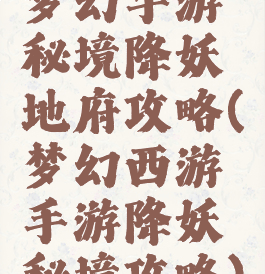 梦幻手游
秘境降妖
地府攻略(
梦幻西游
手游降妖
秘境攻略)